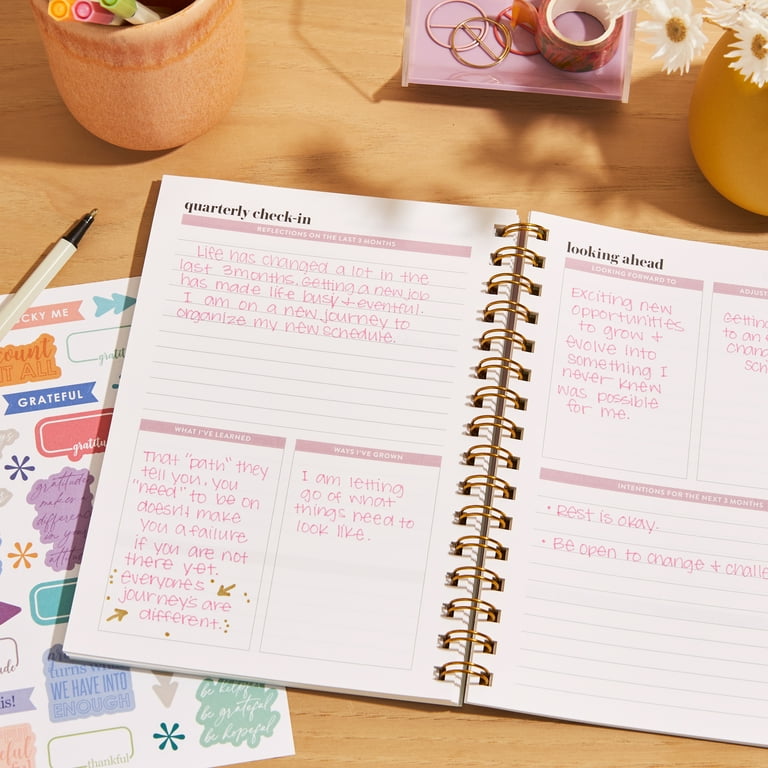 quarterly check-in
REFLECTIONS ON THE LAST 3 MONTHS
Life has changed a lot in the
last 3 months. Getting a new job
has made life busy + eventful.
I am on a new journey to
organize my new schedule.
WHAT I'VE LEARNED
That "path" they
tell you, you
"need" to be on
doesn't make
you a failure
if you are not
there yet.
everyones
journeys are
different.
WAYS I'VE GROWN
I am letting
go of what
things need to
look like.
looking ahead
LOOKING FORWARD TO
Exciting new
opportunities
to grow +
evolve into
something I
never knew
was possible
for me.
ADJUST
Getting
to an
chang
sch
INTENTIONS FOR THE NEXT 3 MONTHS
• Rest is okay.
• Be open to change + challe
CKY ME
count
IT ALL
GRATEFUL
gratitu
gratitude
makes a
difference
in your
turns w
WE HAVE INTO
ENOUGH
his!
be helpful
be grateful
be hopeful
thankful